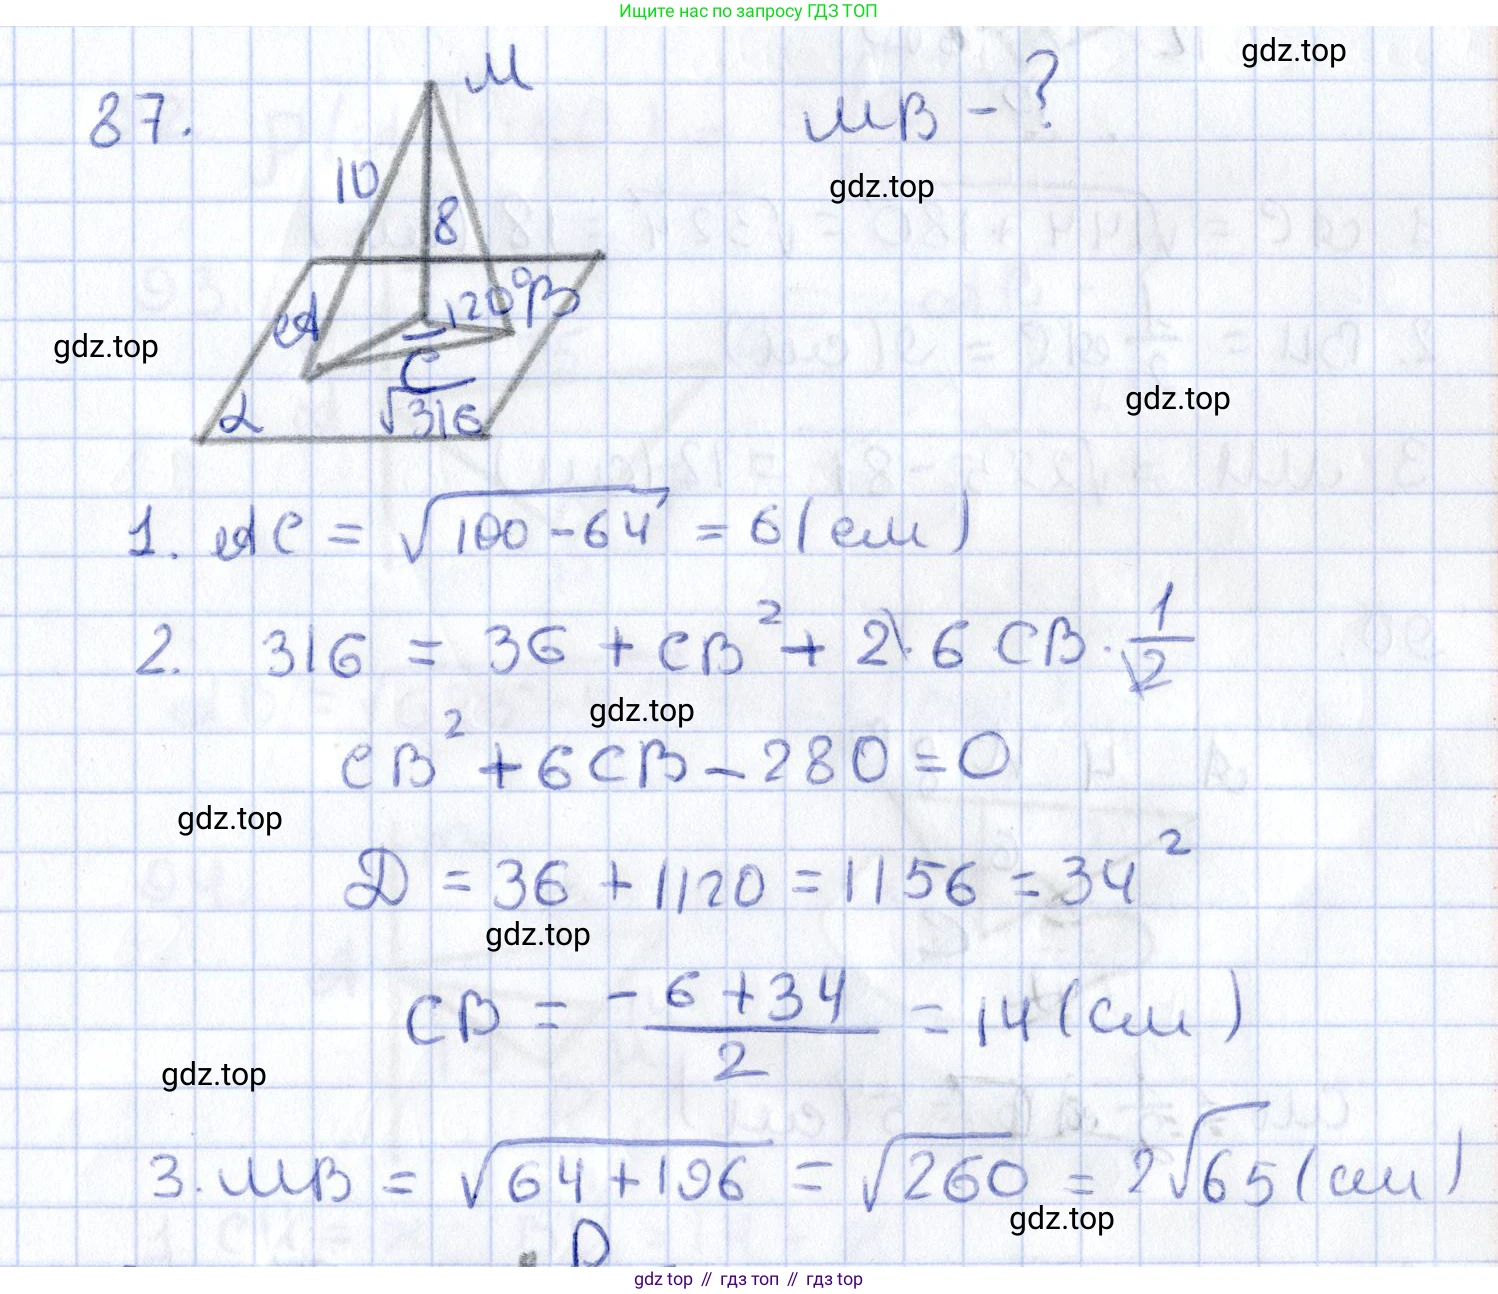 Ищите нас по запросу ГДЗ ТОП
gdz.top
87.
M
MB - ?
10
8
gdz.top
A
120°
B
C
gdz.top
α
√316
gdz.top
1. AC = √100-64 = 6 (см)
2. 316 = 36 + CB² + 2·6 CB · 1/2
gdz.top
CB² + 6CB - 280 = 0
gdz.top
D = 36 + 1120 = 1156 = 34²
gdz.top
CB = -6+34/2 = 14 (см)
gdz.top
3. MB = √64+196 = √260 = 2√65 (см)
gdz.top
gdz top // гдз топ // гдз top